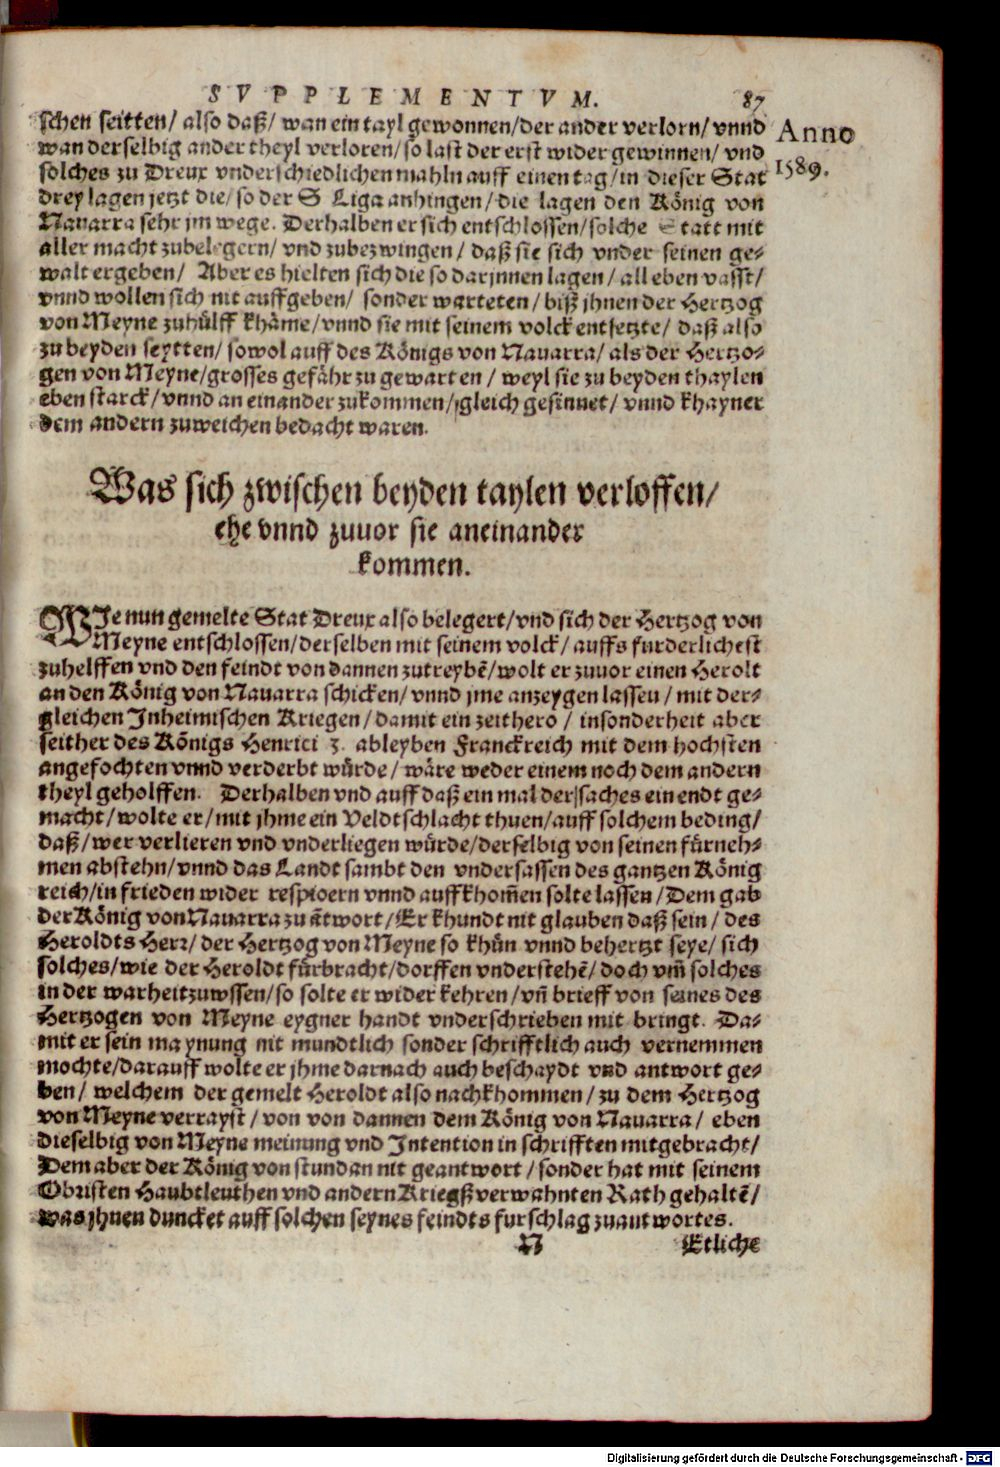 SVPPLEMENTVM. 87
schen seitten/ also daß/ wan ein tayl gewonnen/der ander verlorn/ vnnd
Anno
1589.
wan derselbig ander theyl verloren/ so last der erst wider gewinnen/ vnd
solches zu Dreux vnderschiedlichen mahln auff einen tag/ in dieser Stat
drey lagen jetzt die/ so der S Liga anhingen/ die lagen den König von
Nauarra sehr jm wege. Derhalben er sich entschlossen/ solche Statt mit
aller macht zubelegern/ vnd zubezwingen/ daß sie sich vnder seinen ge-
walt ergeben/ Aber es hielten sich die so darjnnen lagen/ all eben vasst/
vnnd wollen sich nit auffgeben/ sonder warteten/ biß jhnen der Hertzog
von Meyne zuhülff khäme/ vnnd sie mit seinem volck entsetzte/ daß also
zu beyden seytten/ sowol auff des Königs von Nauarra/ als der Hertzo-
gen von Meyne/ grosses gefähr zu gewarten/ weyl sie zu beyden thaylen
eben starck/ vnnd an einander zukommen/ gleich gesinnet/ vnnd khayner
dem andern zuweichen bedacht waren.
Was sich zwischen beyden taylen verloffen/
ehe vnnd zuuor sie aneinander
kommen.
WJe nun gemelte Stat Dreux also belegert/ vnd sich der Hertzog von
Meyne entschlossen/ derselben mit seinem volck/ auffs furderlichest
zuhelffen vnd den feindt von dannen zutreybē/ wolt er zuuor einen Herolt
an den König von Nauarra schicken/ vnnd jme anzeygen lassen/ mit der-
gleichen Jnheimischen Kriegen/ damit ein zeithero/ insonderheit aber
seither des Königs Henrici 3. ableyben Franckreich mit dem hochsten
angefochten vnnd verderbt würde/ wäre weder einem noch dem andern
theyl geholffen. Derhalben vnd auff daß ein mal der saches ein endt ge-
macht/ wolte er/ mit jhme ein Veldtschlacht thuen/ auff solchem beding/
daß/ wer verlieren vnd vnderliegen würde/ derselbig von seinen fürneh-
men abstehn/ vnnd das Landt sambt den vndersassen des gantzen König
reich/ in frieden wider respioern vnnd auffkhom̄en solte lassen/ Dem gab
der König von Nauarra zu ātwort/ Er khundt nit glauben daß sein/ des
Heroldts Herz/ der Hertzog von Meyne so khün vnnd behertzt seye/ sich
solches/ wie der Heroldt fürbracht/ dorffen vnderstehē/ doch vm̄ solches
in der warheit zuwssen/ so solte er wider kehren/ vn̄ brieff von seines des
Hertzogen von Meyne eygner handt vnderschrieben mit bringt. Da-
mit er sein maynung nit mundtlich sonder schrifftlich auch vernemmen
mochte/ darauff wolte er jhme darnach auch beschaydt vnd antwort ge-
ben/ welchem der gemelt Heroldt also nachkhommen/ zu dem Hertzog
von Meyne verrayst/ von von dannen dem König von Nauarra/ eben
dieselbig von Meyne meinung vnd Jntention in schrifften mitgebracht/
Dem aber der König von stundan nit geantwort/ sonder hat mit seinem
Obristen Haubtleuthen vnd andern Kriegß verwahnten Rath gehaltē/
was jhnen duncket auff solchen seynes feindts furschlag zuantwortes.
N Etliche
Digitalisierung gefördert durch die Deutsche Forschungsgemeinschaft - DFG